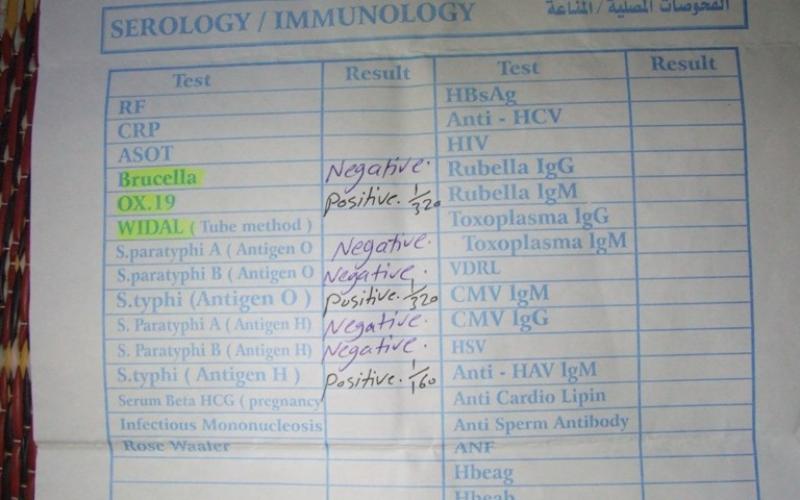 SEROLOGY / IMMUNOLOGY الفحوصات المصلية / المناعة
Test Result Test Result
RF HBsAg
CRP Anti - HCV
ASOT HIV
Brucella Negative. Rubella IgG
OX.19 Positive. 1/320 Rubella IgM
WIDAL ( Tube method ) Toxoplasma IgG
S.paratyphi A ( Antigen O Negative. Toxoplasma IgM
S.paratyphi B ( Antigen O Negative. VDRL
S.typhi (Antigen O ) Positive. 1/320 CMV IgM
S. Paratyphi A ( Antigen H) Negative. CMV IgG
S. Paratyphi B ( Antigen H) Negative. HSV
S.typhi ( Antigen H ) Positive. 1/160 Anti - HAV IgM
Serum Beta HCG ( pregnancy Anti Cardio Lipin
Infectious Mononucleosis Anti Sperm Antibody
Rose Waaler ANF
Hbeag
Hbeab